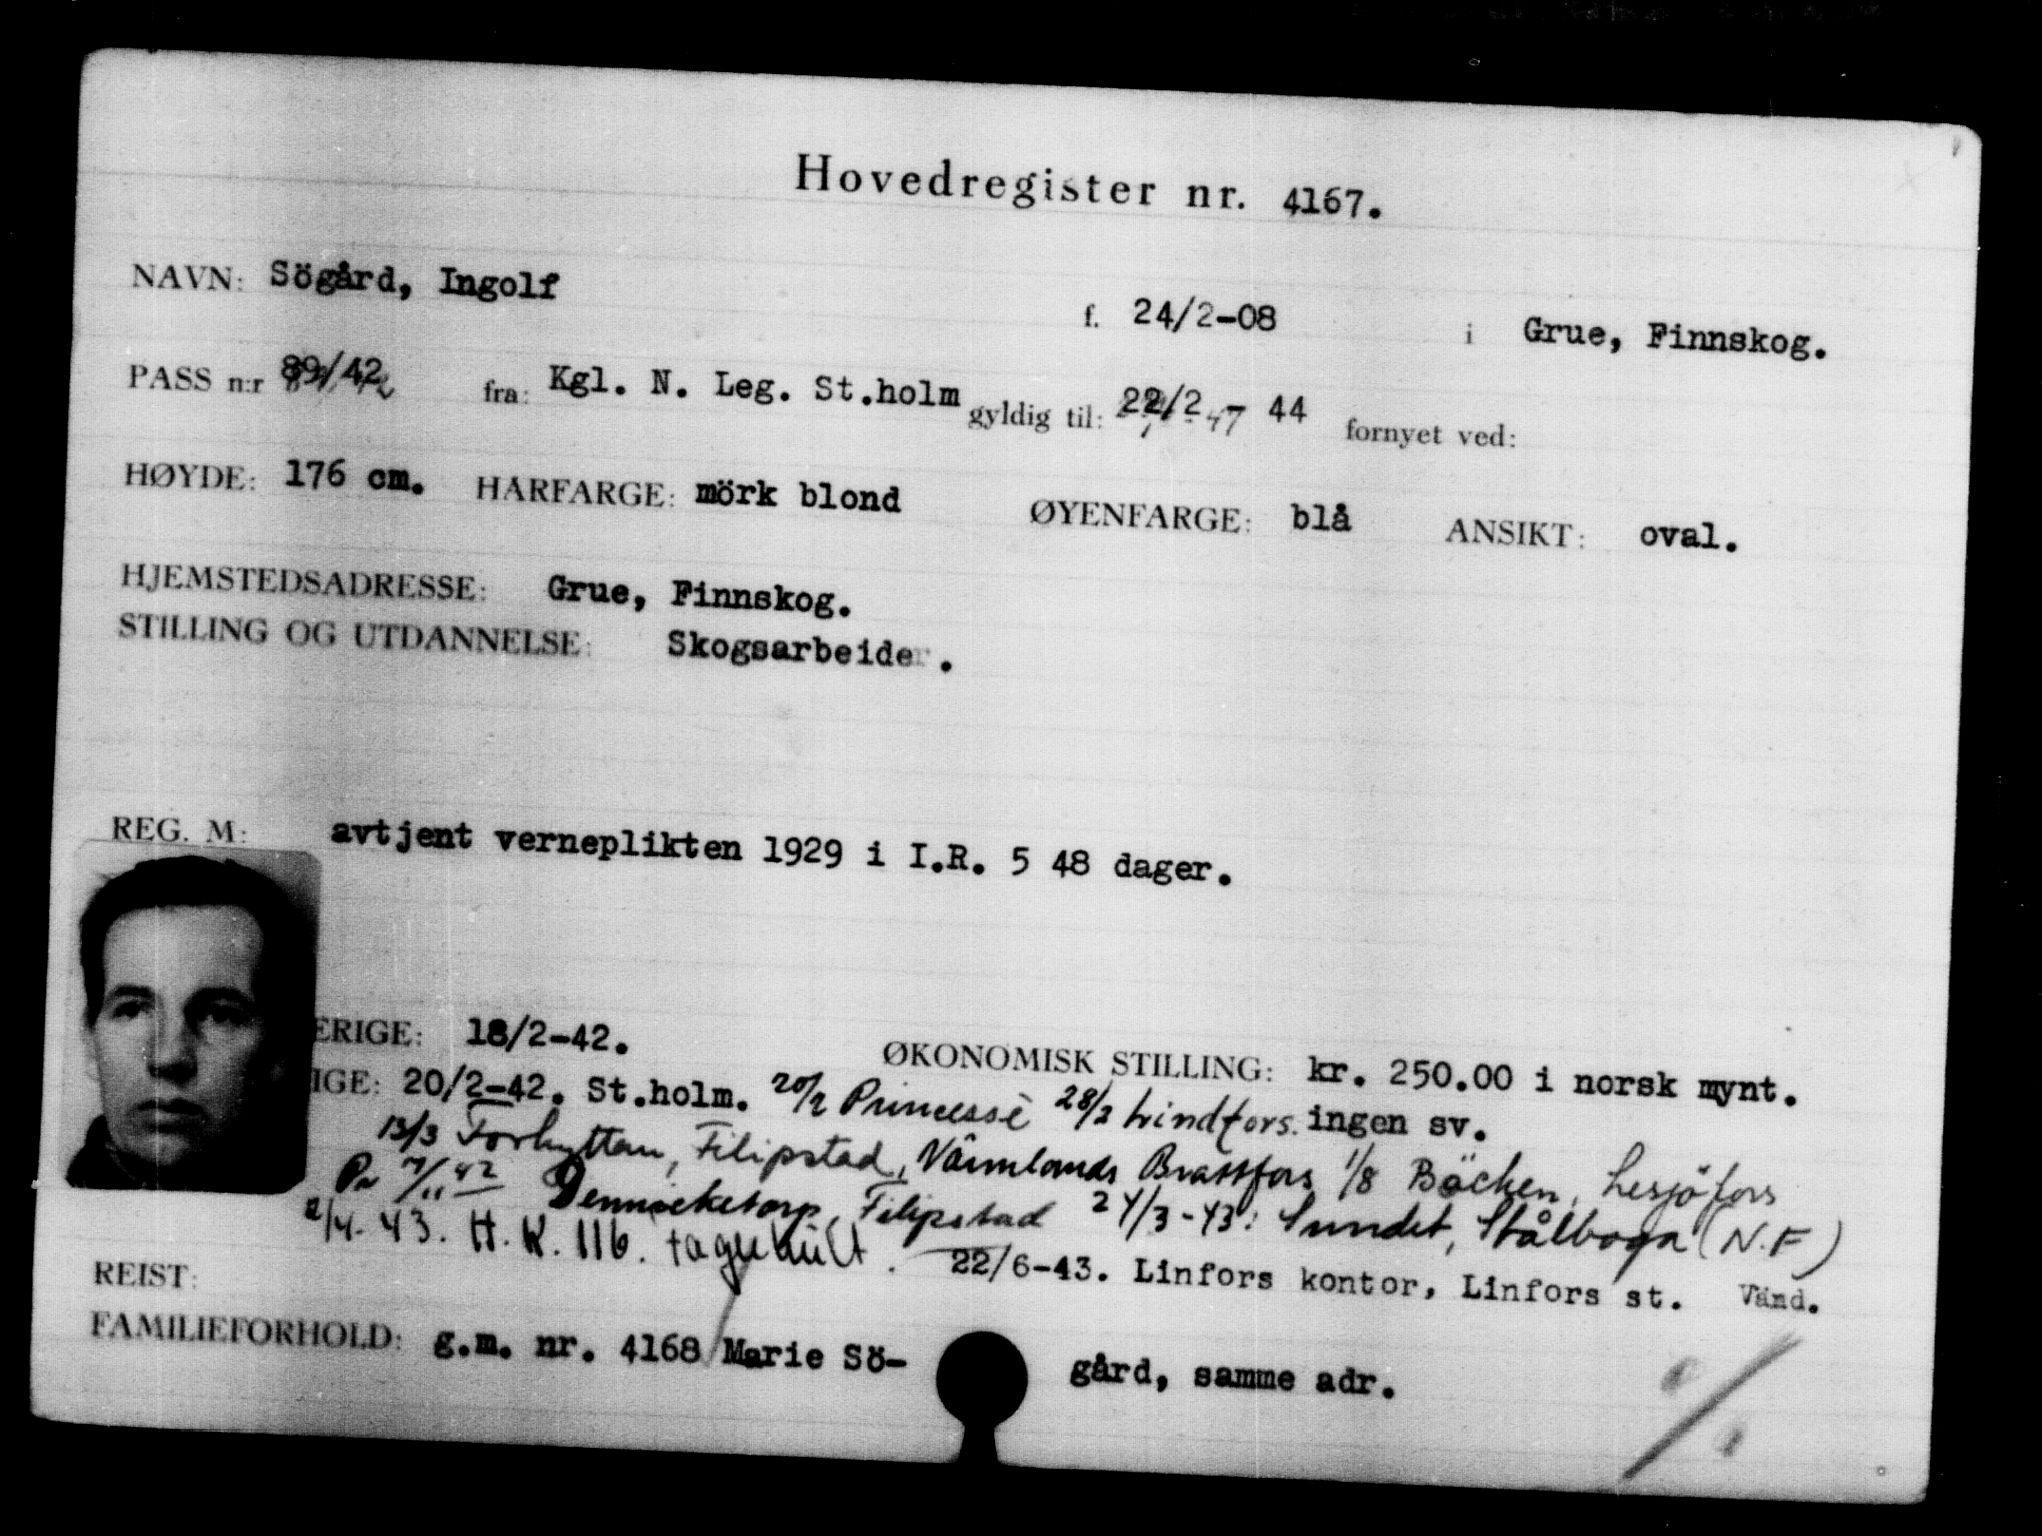 Hovedregister nr. 4167.
NAVN: Sögård, Ingolf f. 24/2-08 i Grue, Finnskog.
PASS n:r 89/42 fra: Kgl. N. Leg. St.holm gyldig til: 22/2 - 44 fornyet ved:
HØYDE: 176 cm. HARFARGE: mörk blond ØYENFARGE: blå ANSIKT: oval.
HJEMSTEDSADRESSE: Grue, Finnskog.
STILLING OG UTDANNELSE: Skogsarbeider.
REG. M: avtjent verneplikten 1929 i I.R. 5 48 dager.
ERIGE: 18/2-42. ØKONOMISK STILLING: kr. 250.00 i norsk mynt.
IGE: 20/2-42. St.holm. 20/2 Princesse 28/2 Lindfors. ingen sv.
13/3 Torhyttan, Filipstad, Värmlands Brattfors 1/8 Bäcken, Lesjöfors
Filipstad 24/3-43: Sundet, Stålboga (N.F)
2/4-43. H.K. 116. 22/6-43. Linfors kontor, Linfors st. Vämd.
REIST:
FAMILIEFORHOLD: g.m. nr. 4168/Marie Sö- gård, samme adr.